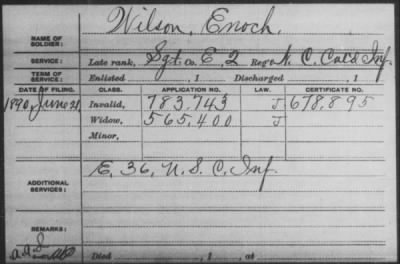 NAME OF SOLDIER: Wilson, Enoch.
SERVICE: Late rank, Sgt. Co. E, 2 Reg't N. C. Col'd Inf.
TERM OF SERVICE: Enlisted , 1 Discharged , 1
DATE OF FILING. CLASS. APPLICATION NO. LAW. CERTIFICATE NO.
1890, June 21 Invalid, 783.743 J 678,895
Widow, 565,400 J
Minor,
E, 36, U. S. C. Inf.
ADDITIONAL SERVICES:
REMARKS:
Died , 1 , at